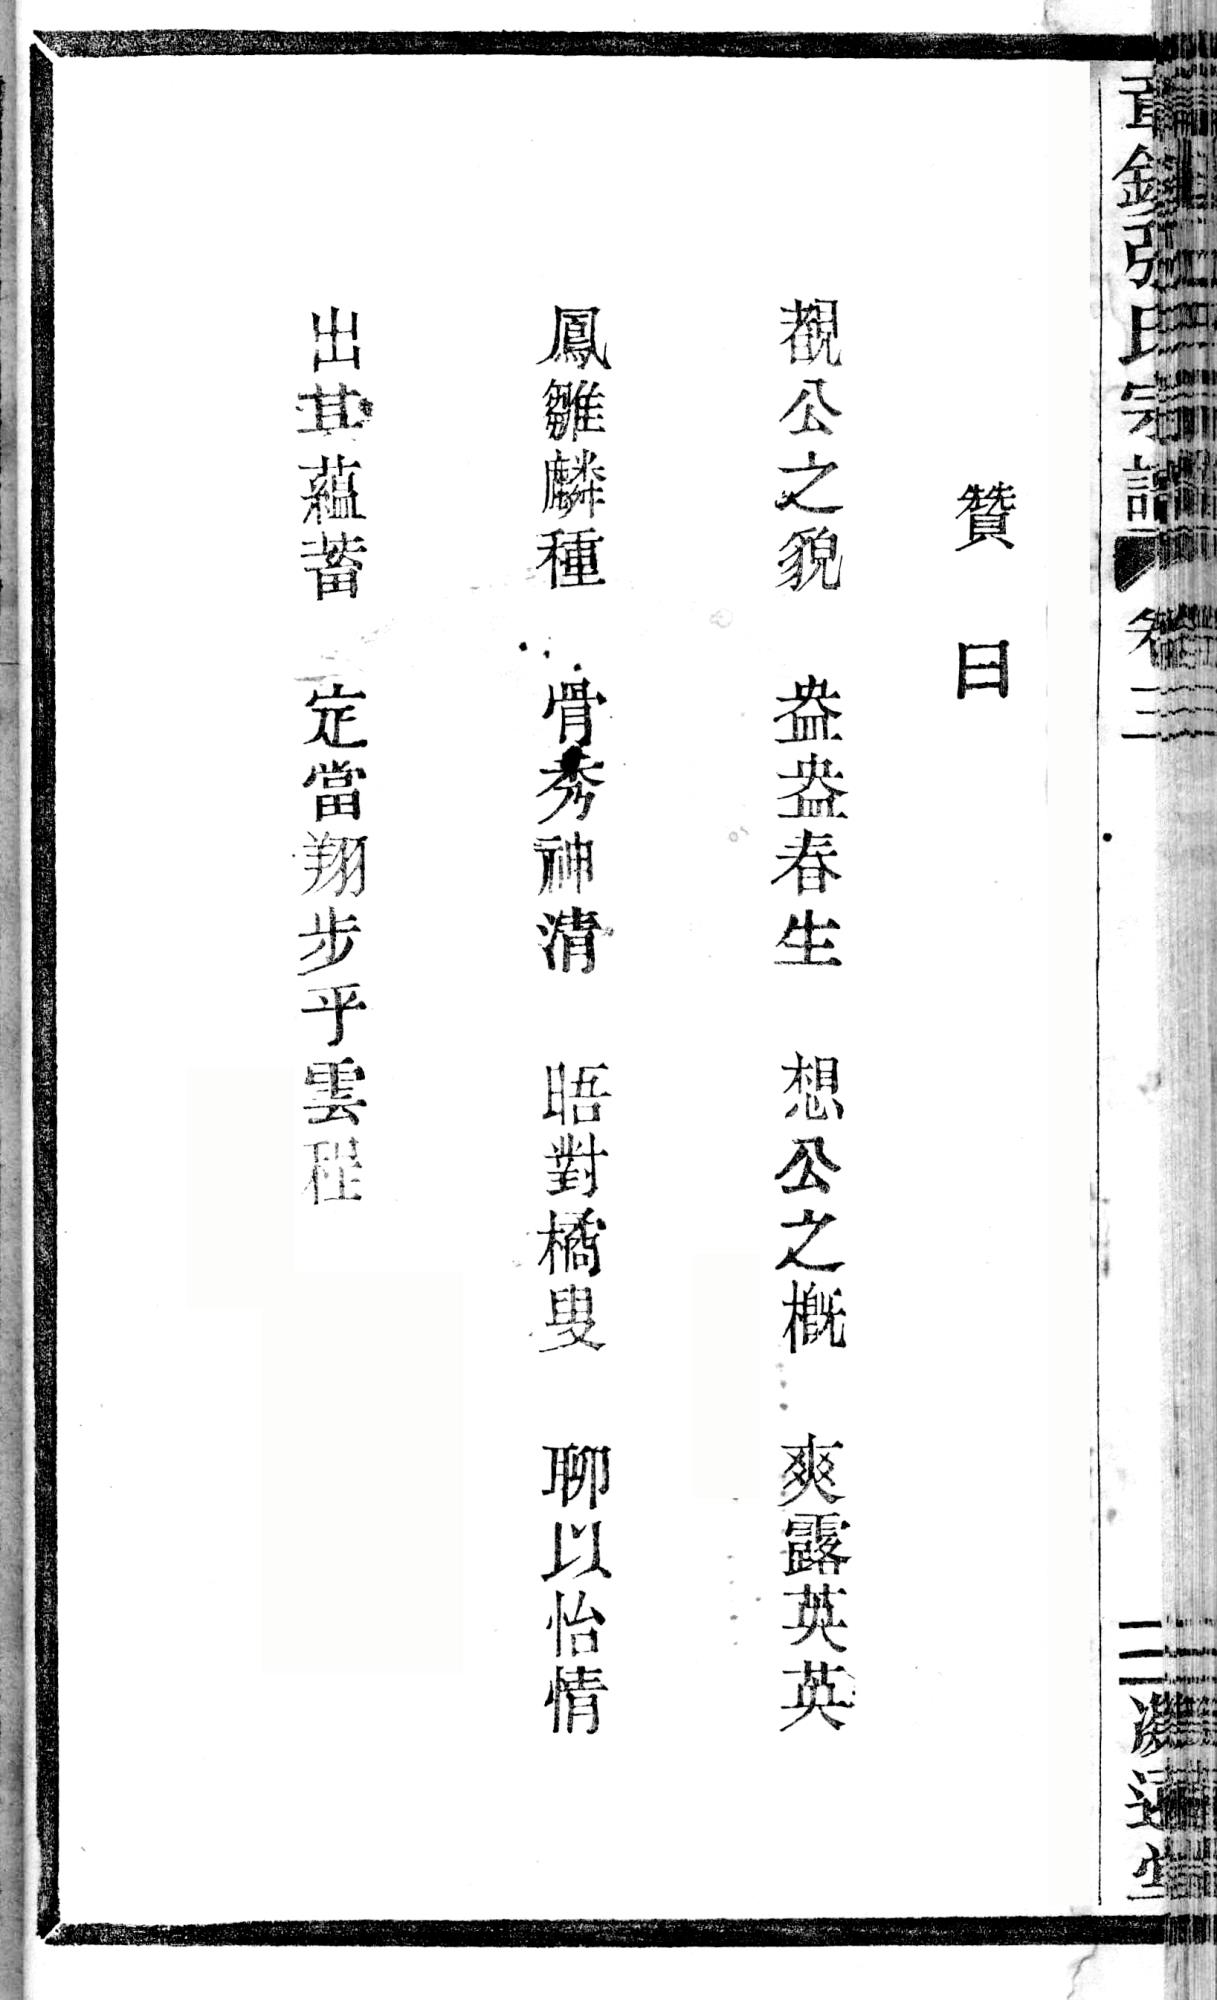 張氏宗譜 卷三
二
贊曰
覩公之貌 盎盎春生 想公之概 爽露英英
鳳雛麟種 骨秀神清 晤對橘叟 聊以怡情
出其蘊蓄 定當翔步乎雲程